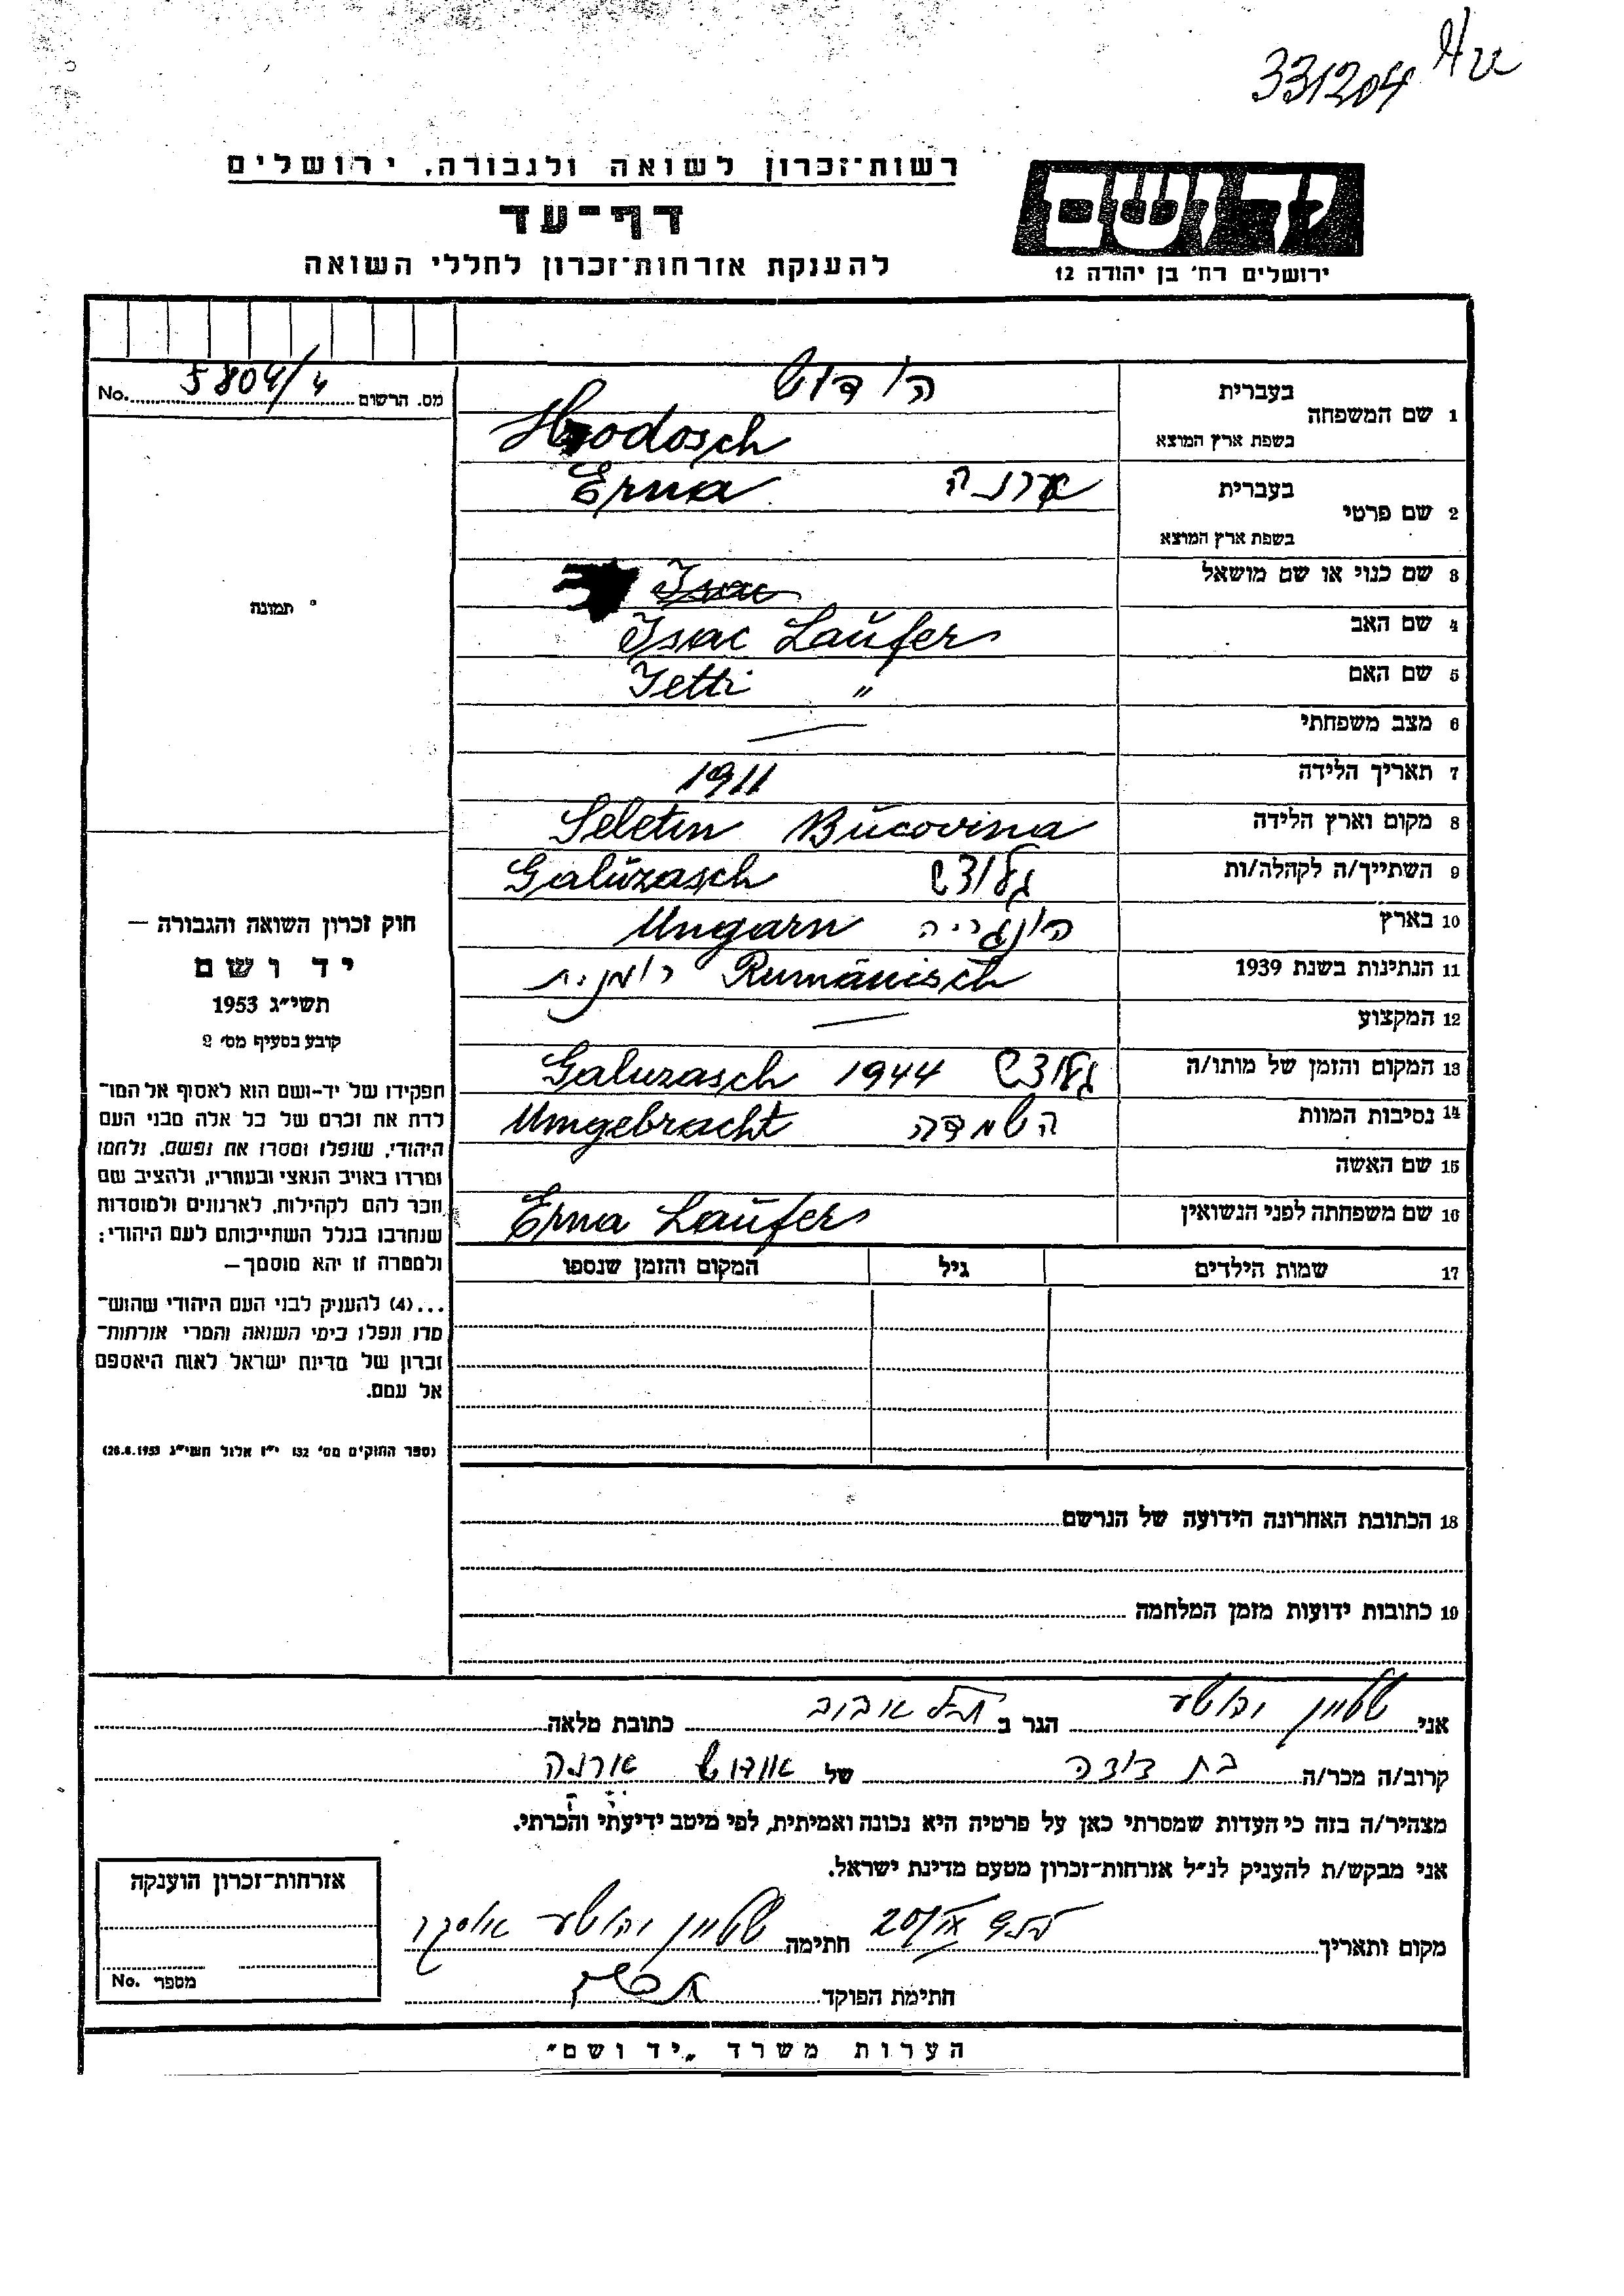 331204
רשות־זכרון לשואה ולגבורה, ירושלים
דף־עד
להענקת אזרחות־זכרון לחללי השואה
יד ושם
ירושלים רח' בן יהודה 12
מס. הרשום 5804/4 No.
1 שם המשפחה בעברית הודוש
בשפת ארץ המוצא Hodosch
2 שם פרטי בעברית ארנה Erna
בשפת ארץ המוצא
3 שם כנוי או שם מושאל Isac
4 שם האב Isac Laufer
5 שם האם Jetti "
6 מצב משפחתי —
7 תאריך הלידה 1911
8 מקום וארץ הלידה Seletin Bucovina
9 השתייך/ה לקהלה/ות גלוצש Galuzasch
10 בארץ הונגריה Ungarn
11 הנתינות בשנת 1939 Rumänisch רומנית
12 המקצוע —
13 המקום והזמן של מותו/ה גלוצש 1944 Galuzasch
14 נסיבות המוות השמדה Umgebracht
15 שם האשה
16 שם משפחתה לפני הנשואין Erna Laufer
17 שמות הילדים גיל המקום והזמן שנספו
תמונה
חוק זכרון השואה והגבורה —
יד ושם
תשי״ג 1953
קובע בסעיף מס׳ 2
תפקידו של יד-ושם הוא לאסוף אל המו־
לדת את זכרם של כל אלה מבני העם
היהודי, שנפלו ומסרו את נפשם, נלחמו
ומרדו באויב הנאצי ובעוזריו, ולהציב שם
וזכר להם לקהילות, לארגונים ולמוסדות
שנחרבו בגלל השתייכותם לעם היהודי;
ולמטרה זו יהא מוסמך—
...(4) להעניק לבני העם היהודי שהוש־
מדו ונפלו בימי השואה והמרי אזרחות־
זכרון של מדינת ישראל לאות היאספם
אל עמם.
(ספר החוקים מס׳ 132 י״ז אלול תשי״ג 28.8.1953)
18 הכתובת האחרונה הידועה של הנרשם
19 כתובות ידועות מזמן המלחמה
אני שטיין הגר ב תל אביב כתובת מלאה
קרוב/ה מכר/ה בת דודה של אודוש ארנה
מצהיר/ה בזה כי העדות שמסרתי כאן על פרטיה היא נכונה ואמיתית, לפי מיטב ידיעתי והכרתי.
אני מבקש/ת להעניק לנ״ל אזרחות־זכרון מטעם מדינת ישראל.
מקום ותאריך חתימה שטיין
חתימת הפוקד
אזרחות־זכרון הוענקה
מספר No.
הערות משרד „יד ושם״